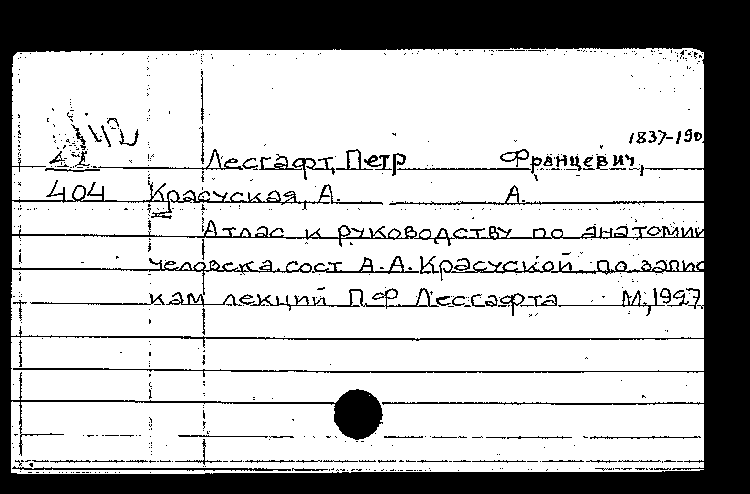 42
1837-190
Лесгафт, Петр Францевич,
404 Красуская, А. А.
Атлас к руководству по анатомии
человека. сост А.А. Красуской по запис
кам лекций П.Ф Лесгафта М., 1927